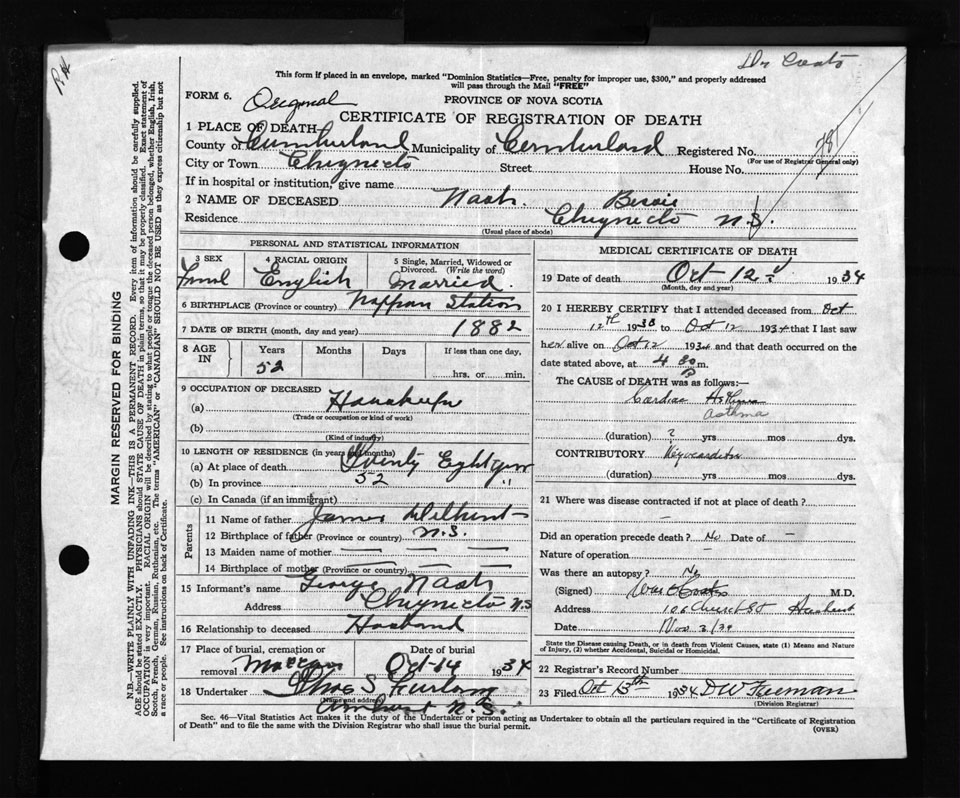 Dr Coats
This form if placed in an envelope, marked "Dominion Statistics—Free, penalty for improper use, $300," and properly addressed
will pass through the Mail "FREE"
FORM 6. Original
PROVINCE OF NOVA SCOTIA
CERTIFICATE OF REGISTRATION OF DEATH
1 PLACE OF DEATH
County of Cumberland Municipality of Cumberland Registered No.
(For use of Registrar General only)
City or Town Chignecto Street House No.
If in hospital or institution, give name
2 NAME OF DECEASED Nash. Bessie
Residence Chignecto N.S.
(Usual place of abode)
PERSONAL AND STATISTICAL INFORMATION
3 SEX 4 RACIAL ORIGIN 5 Single, Married, Widowed or Divorced. (Write the word)
English Married.
6 BIRTHPLACE (Province or country) Nappan Station
7 DATE OF BIRTH (month, day and year) 1882
8 AGE IN Years Months Days If less than one day,
52 hrs. or min.
9 OCCUPATION OF DECEASED
(a) Housekeeper
(Trade or occupation or kind of work)
(b)
(Kind of industry)
10 LENGTH OF RESIDENCE (in years and months)
(a) At place of death Twenty Eight years
(b) In province 52 "
(c) In Canada (if an immigrant)
Parents
11 Name of father James
12 Birthplace of father (Province or country) N.S.
13 Maiden name of mother — — —
14 Birthplace of mother (Province or country) — —
15 Informant's name George Nash
Address Chignecto N.S
16 Relationship to deceased Husband
17 Place of burial, cremation or removal Date of burial
Oct 14 1934
18 Undertaker S Furlong
(Name and address)
Amherst N.S.
MEDICAL CERTIFICATE OF DEATH
19 Date of death Oct 12 1934
(Month, day and year)
20 I HEREBY CERTIFY that I attended deceased from Oct
12th 1930 to Oct 12 1934 that I last saw
her alive on Oct 12 1934 and that death occurred on the
date stated above, at 4 30 P m.
The CAUSE OF DEATH was as follows:—
Cardiac
Astema
(duration) ? yrs mos dys.
CONTRIBUTORY Myocarditis
(duration) yrs mos dys.
21 Where was disease contracted if not at place of death?
—
Did an operation precede death? No Date of —
Nature of operation —
Was there an autopsy? No
(Signed) Coates M.D.
Address 106 Church St Amherst
Date Nov 3/34
State the Disease causing Death, or in death from Violent Causes, state (1) Means and Nature
of Injury, (2) whether Accidental, Suicidal or Homicidal.
22 Registrar's Record Number
23 Filed Oct 13th 1934 D W Freeman
(Division Registrar)
Sec. 46—Vital Statistics Act makes it the duty of the Undertaker or person acting as Undertaker to obtain all the particulars required in the "Certificate of Registration
of Death" and to file the same with the Division Registrar who shall issue the burial permit.
(OVER)
MARGIN RESERVED FOR BINDING
N.B.—WRITE PLAINLY WITH UNFADING INK—THIS IS A PERMANENT RECORD. Every item of information should be carefully supplied.
AGE should be stated EXACTLY. PHYSICIANS should STATE CAUSE OF DEATH in plain terms, so that it may be properly classified. Exact statement of
OCCUPATION is very important. RACIAL ORIGIN will be described by stating to what people or tongue the deceased person belonged, whether English, Irish,
Scotch, French, German, Russian, Ruthenian, etc. The terms "AMERICAN" or "CANADIAN" SHOULD NOT BE USED as they express citizenship but not
a race or people. See instructions on back of Certificate.